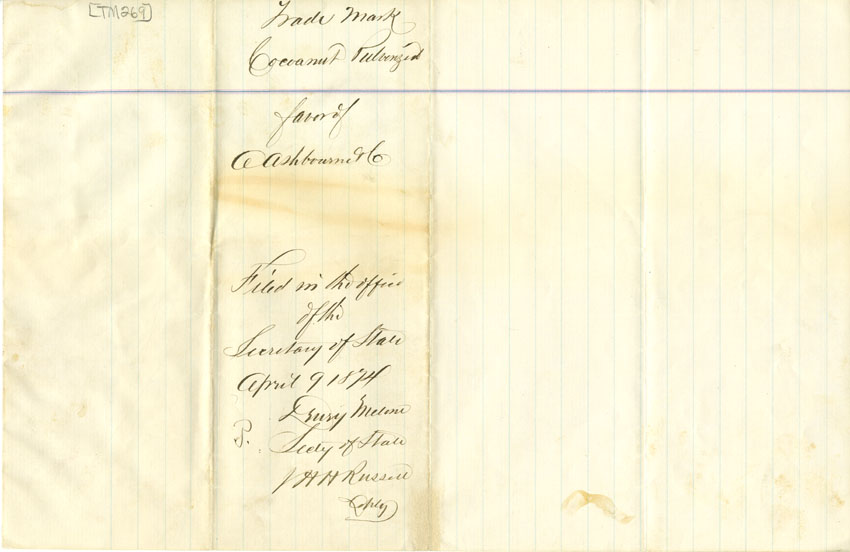 [TM269]
Trade Mark
Cocoanut Pulverized
favor of
C Ashbourne & Co
Filed in the office
of the
Secretary of State
April 9 1874
Drury Melone
Secty of State
P. J H H Russell
Depty